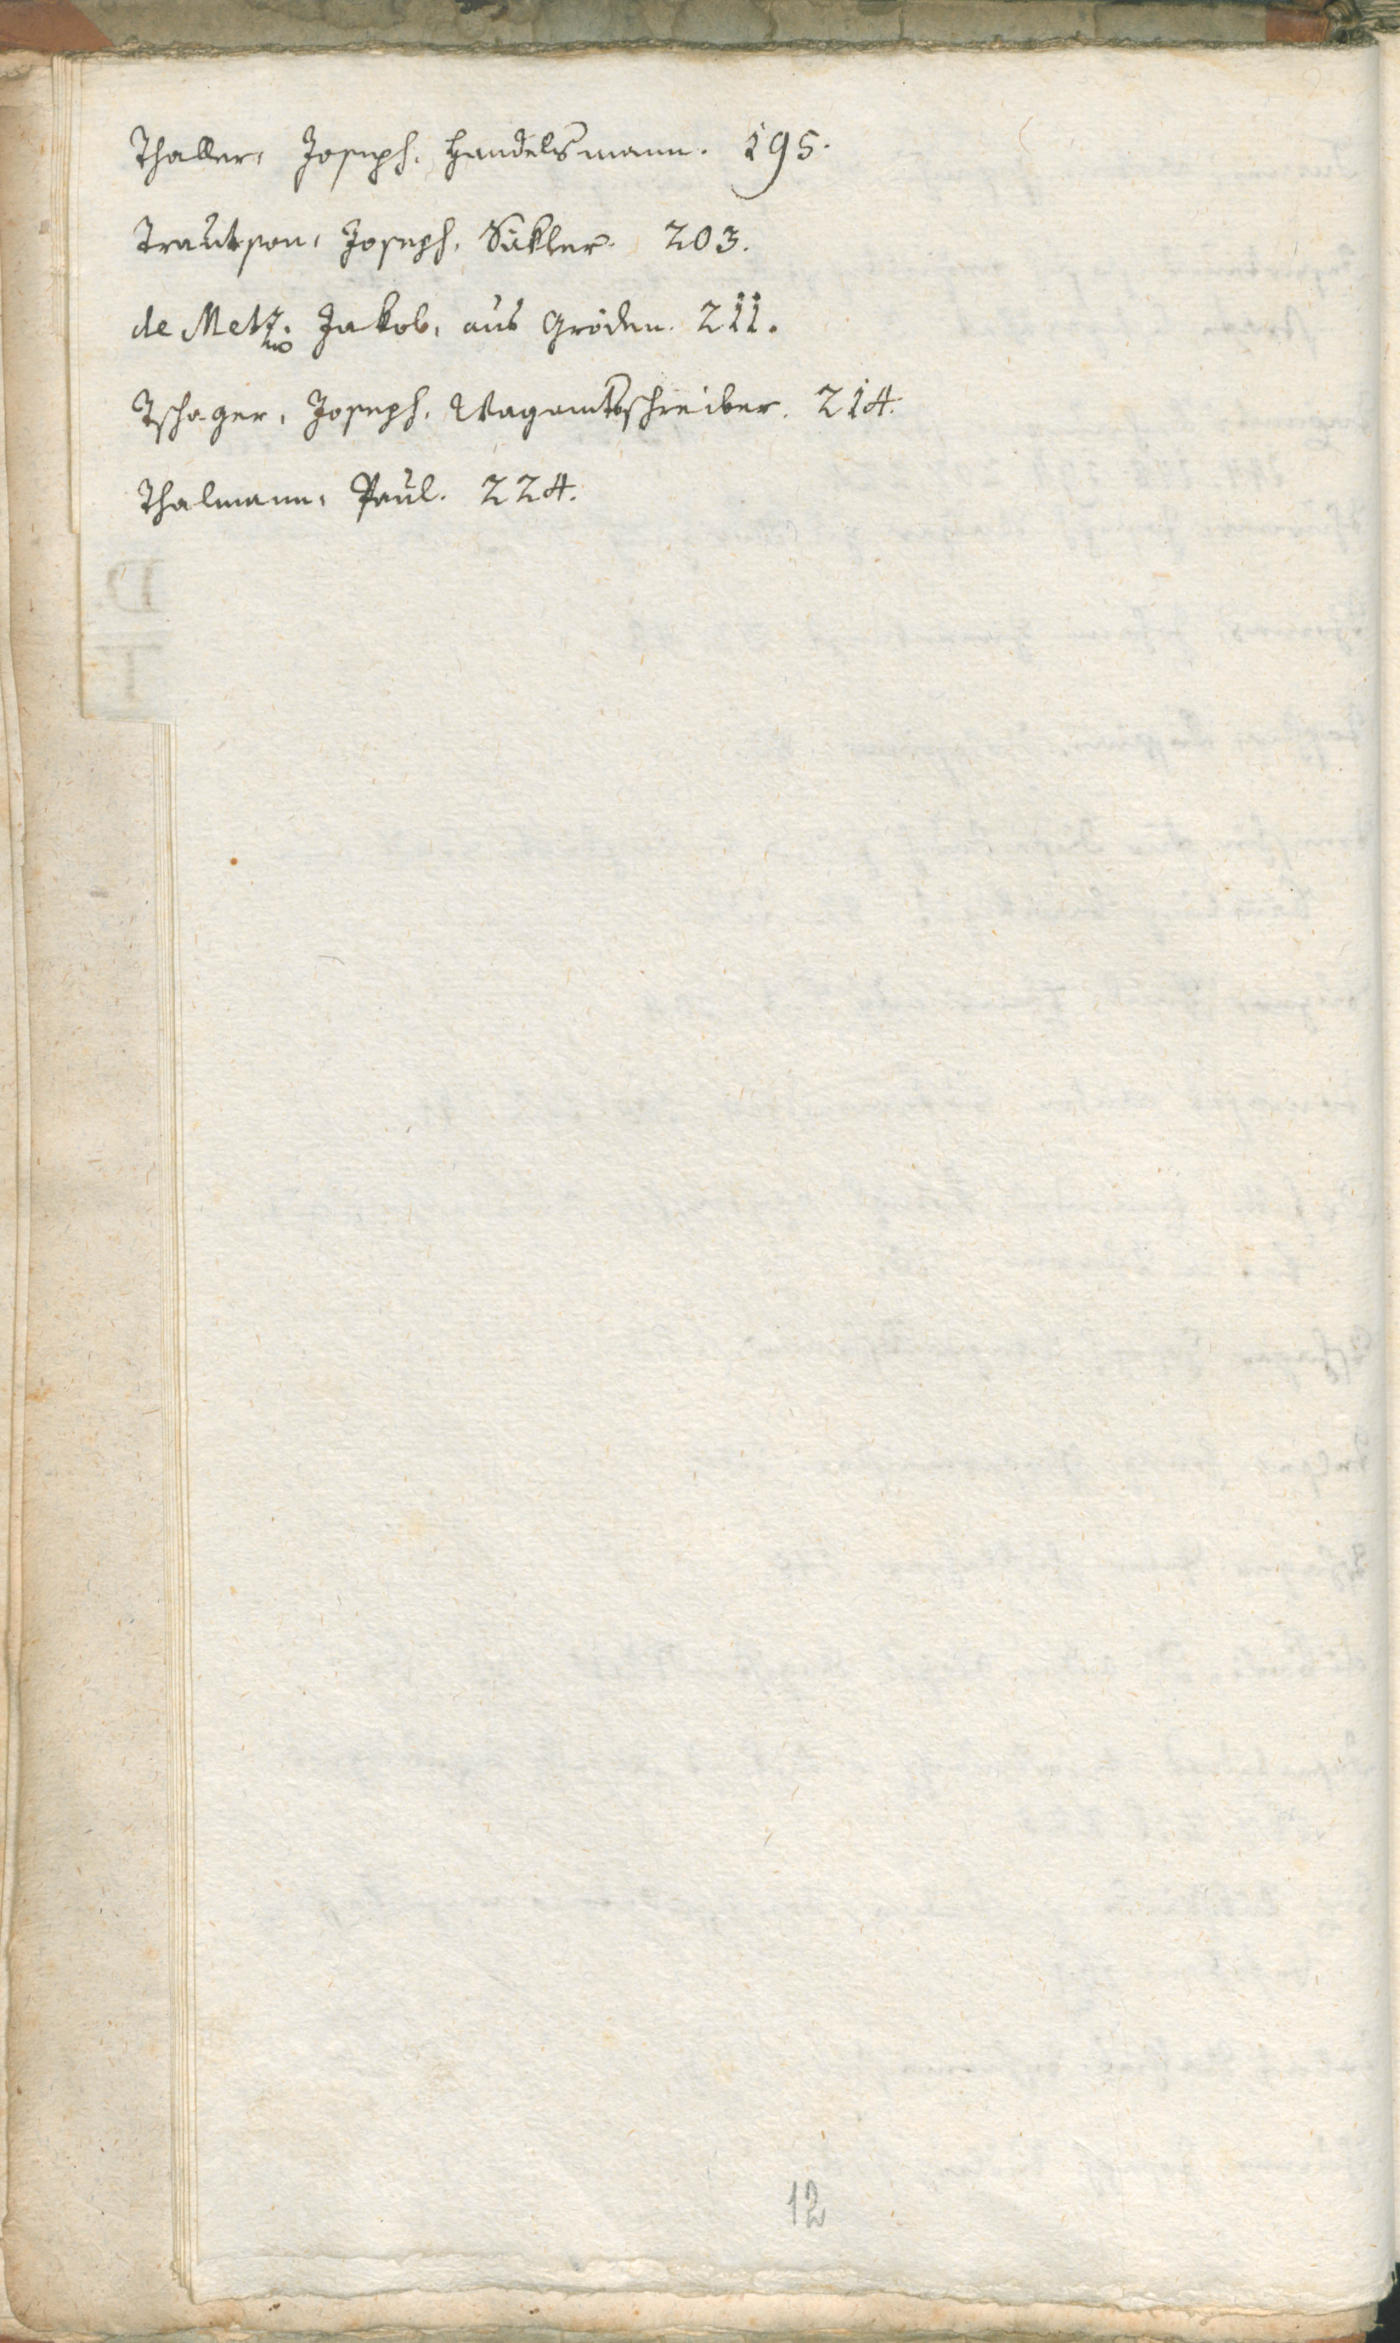 Thaller, Joseph, Handelsmann. 195.
Trautson, Joseph, Säkler. 203.
de Metz. Jakob, aus Gröden. 211.
Tschager, Joseph, Wagamtsschreiber. 214.
Thalmann, Paul. 224.
D.
T
12